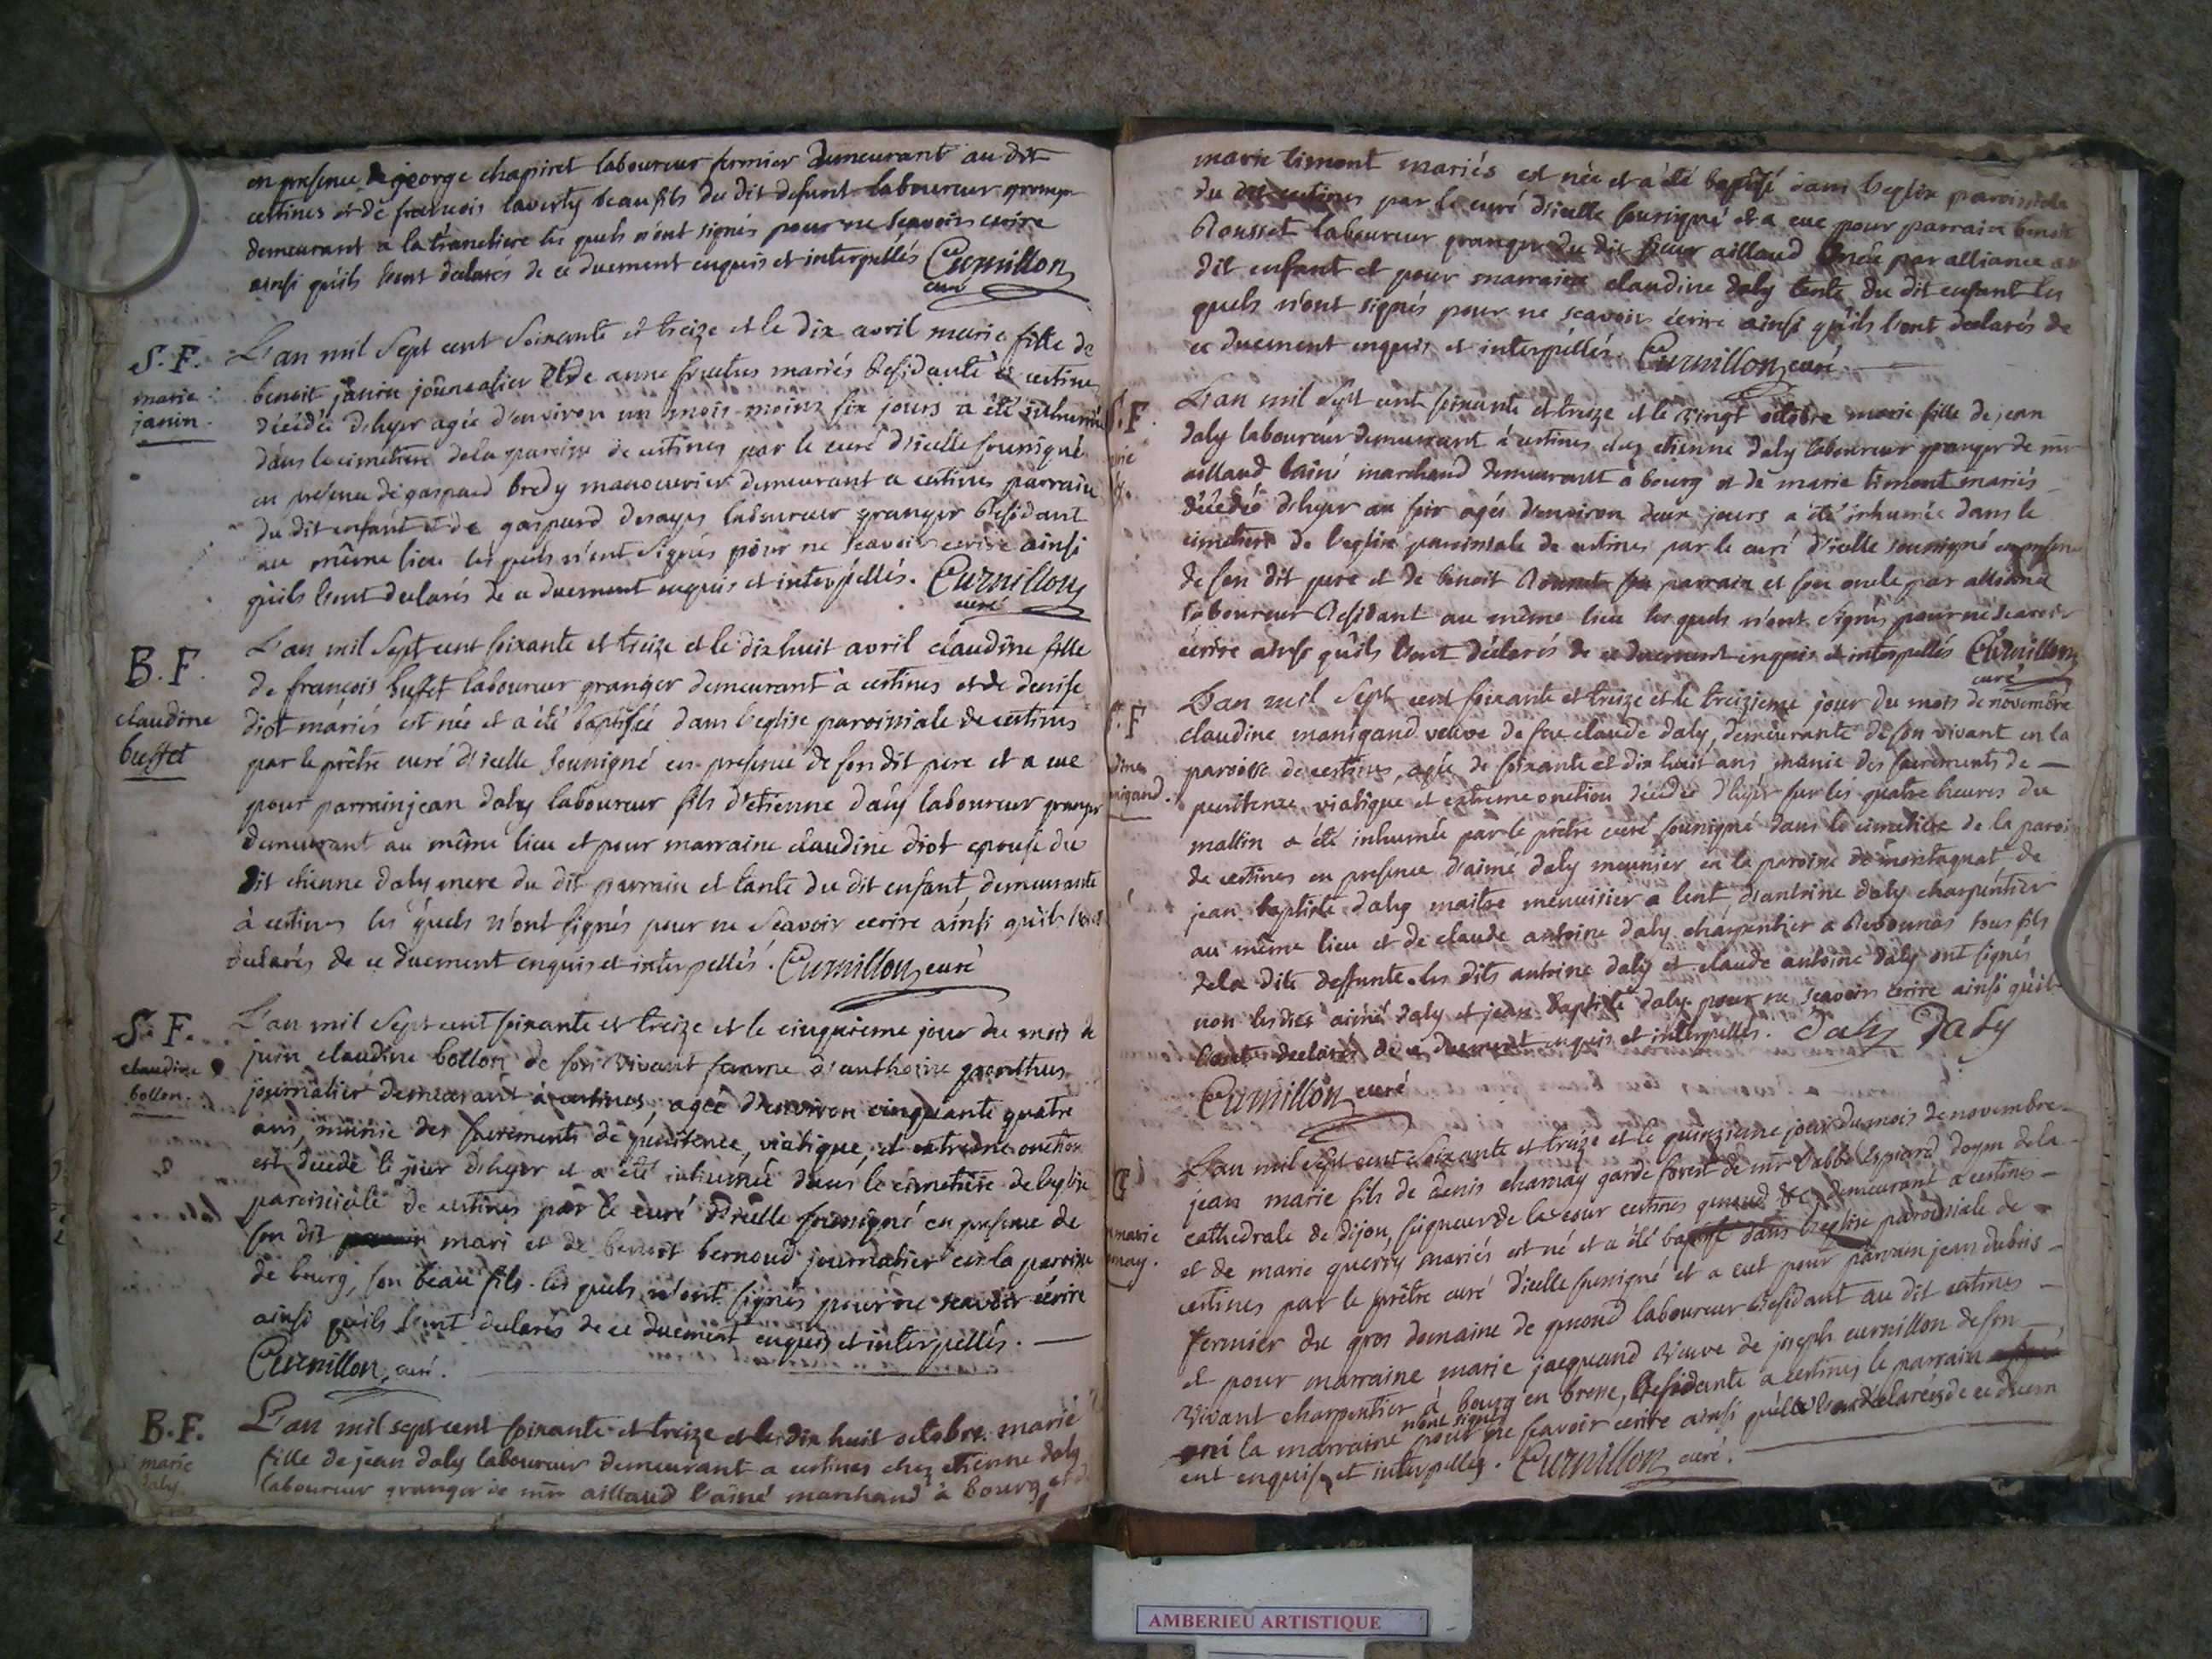 en presence de george chapiret laboureur fermier demeurant au dit
certines et de francois laverty beau fils du dit defunt laboureur granger
demeurant a la tranchiere les quels n'ont signés pour ne scavoir ecrire
ainsi qu'ils l'ont declarés de ce duement enquis et interpellés Curnillon
curé
S. F.
marie
janin.
L'an mil sept cent soixante et treize et le dix avril marie fille de
benoit janin journalier et de anne mariés residante à certines
décédée d'hyer agée d'environ un mois moins six jours a été inhumée
dans le cimetiere de la paroisse de certines par le curé d'icelle soussigné
en presence de gaspard bredy manouvrier demeurant a certines parrain
du dit enfant et de gaspard desayes laboureur granger residant
au même lieu les quels n'ont signés pour ne scavoir ecrire ainsi
qu'ils l'ont declarés de ce duement enquis et interpellés. Curnillon
curé
B. F.
claudine
buffet
L'an mil sept cent soixante et treize et le dix huit avril claudine fille
de françois buffet laboureur granger demeurant à certines et de denise
diot mariés est née et a été baptisée dans l'eglise paroissiale de certines
par le prêtre curé d'icelle soussigné en presence de son dit pere et a eue
pour parrain jean daly laboureur fils d'etienne daly laboureur granger
demeurant au même lieu et pour marraine claudine diot epouse du
dit etienne daly mere du dit parrain et tante du dit enfant, demeurante
à certines les quels n'ont signés pour ne scavoir ecrire ainsi qu'ils l'ont
declarés de ce duement enquis et interpellés. Curnillon curé
S. F.
claudine
bollon.
L'an mil sept cent soixante et treize et le cinquieme jour du mois de
juin claudine bollon de son vivant femme d'anthoine ponthus
journalier demeurant à certines, agée d'environ cinquante quatre
ans, munie des sacrements de pénitence, viatique, et extreme onction
est decedé le jour d'hyer et a été inhumée dans le cimetiere de l'eglise
paroissiale de certines par le curé d'icelle soussigné en presence de
son dit mari et de benoit bernoud journalier en la paroisse
de bourg, son beau fils. les quels n'ont signés pour ne scavoir écrire
ainsi qu'ils l'ont declarés de ce duement enquis et interpellés.
Curnillon, curé.
B. F.
marie
daly.
L'an mil sept cent soixante et treize et le dix huit octobre marie
fille de jean daly laboureur demeurant a certines chez etienne daly
laboureur granger de mr aillaud l'ainé marchand à bourg, et de
marie timont mariés est née et a été baptisé dans l'eglise paroissiale
du dit certines par le curé d'icelle soussigné et a eue pour parrain benoit
Rousset laboureur granger du dit sieur aillaud oncle par alliance au
dit enfant et pour marraine claudine daly tante du dit enfant les
quels n'ont signés pour ne scavoir écrire ainsi qu'ils l'ont declarés de
ce duement enquis et interpéllés. Curnillon curé
F.
L'an mil sept cent soixante et treize et le vingt octobre marie fille de jean
daly laboureur demeurant à certines chez etienne daly laboureur granger de mr
aillaud lainé marchand demeurant à bourg et de marie timont mariés
décédée d'hyer au soir agée d'environ deux jours a été inhumée dans le
cimetiere de l'eglise paroissiale de certines par le curé d'icelle soussigné en presence
de son dit pere et de benoit Rousset parrain et son oncle par alliance
laboureur residant au même lieu les quels n'ont signés pour ne scavoir
écrire ainsi qu'ils l'ont déclarés de ce duement enquis et interpellés Curnillon
curé
F
migand.
L'an mil sept cent soixante et treize et le treizieme jour du mois de novembre
claudine manigand veuve de feu claude daly, demeurante de son vivant en la
paroisse de certines, agée de soixante et dix huit ans munie des sacrements de
penitence, viatique et extreme onction décédée d'hyer sur les quatre heures du
mattin a été inhumée par le prêtre curé soussigné dans le cimetiere de la paroi
de certines en presence d'aimé daly meunier en la paroisse de montagnat de
jean baptiste daly maitre menuisier a lent d'antoine daly charpéntier
au même lieu et de claude antoine daly charpentier a Revonnas tous fils
de la dite deffunte. les dits antoine daly et claude antoine daly ont signés
non les dits aimé daly et jean baptiste daly pour ne scavoir ecrire ainsi qu'ils
l'ont declarés de ce duement enquis et interpellés. Daly Daly
Curnillon curé
marie
may.
L'an mil sept cent soixante et treize et le quinzieme jour du mois de novembre
jean marie fils de denis charnay garde forest de mr l'abbé Espiard doyen de la
cathedrale de dijon, seigneur de la cour certines genoud &c, demeurant a certines
et de marie guerry mariés est né et a été baptisé dans l'eglise paroissiale de
certines par le prêtre curé d'icelle soussigné et a eut pour parrain jean dubois
fermier du gros domaine de genoud laboureur residant au dit certines
et pour marraine marie jacquand veuve de joseph curnillon de son
vivant charpentier à bourg en bresse, residante a certines le parrain
la marraine n'ont signés pour ne scavoir ecrire ainsi declarés de ce duem
ent enquise et interpelles. Curnillon curé.
AMBERIEU ARTISTIQUE